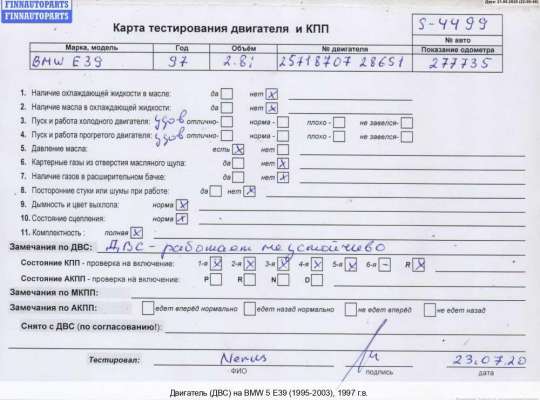 FINNAUTOPARTS
FINNAUTOPARTS
Карта тестирования двигателя и КПП
S-4499
№ авто
Марка, модель Год Объём № двигателя Показание одометра
BMW E39 97 2.8i 25718707 286S1 277735
1. Наличие охлаждающей жидкости в масле: да нет x
2. Наличие масла в охлаждающей жидкости: да нет x
3. Пуск и работа холодного двигателя: удов отлично- норма - плохо - не завелся-
4. Пуск и работа прогретого двигателя: удов отлично- норма - плохо - не завелся-
5. Давление масла: есть x нет
6. Картерные газы из отверстия масляного щупа: да нет x
7. Наличие газов в расширительном бачке: да нет x
8. Посторонние стуки или шумы при работе: да нет x
9. Дымность и цвет выхлопа: норма x
10. Состояние сцепления: норма x
11. Комплектность : полная x
Замечания по ДВС: ДВС - работает не устойчево
Состояние КПП - проверка на включение: 1-я x 2-я x 3-я x 4-я x 5-я x 6-я – R x
Состояние АКПП - проверка на включение: P R N D
Замечания по МКПП:
Замечания по АКПП: едет вперёд нормально едет назад нормально не едет вперёд не едет назад
Снято с ДВС (по согласованию!):
Тестировал: Nerus 23.07.20
ФИО подпись дата
Двигатель (ДВС) на BMW 5 E39 (1995-2003), 1997 г.в.